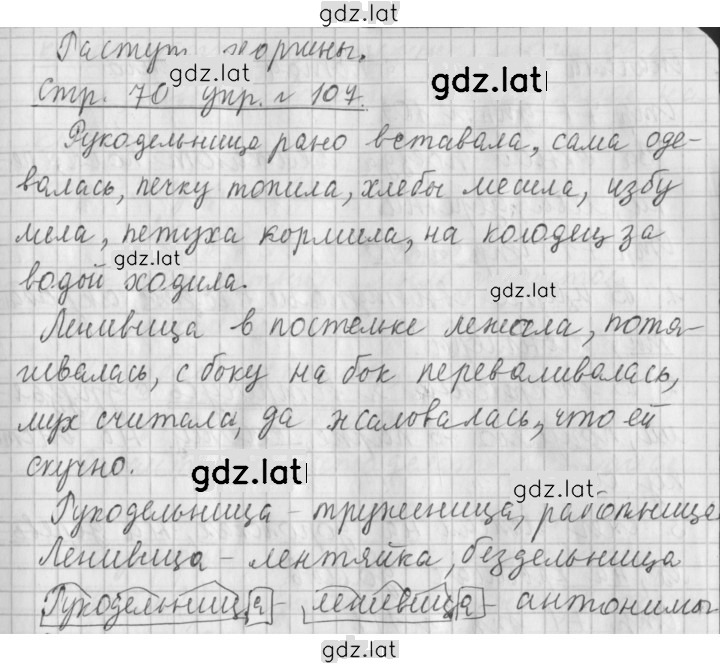 gdz.lat
Растут георгины.
gdz.lat
gdz.lat
Стр. 70 упр. № 107.
Рукодельница рано вставала, сама оде-
валась, печку топила, хлебы месила, избу
мела, петуха кормила, на колодец за
gdz.lat
водой ходила.
gdz.lat
Ленивица в постельке лежала, потя-
гивалась, с боку на бок переваливалась,
мух считала, да жаловалась, что ей
скучно.
gdz.lat
gdz.lat
Рукодельница - труженица, работница
Ленивица - лентяйка, бездельница
Рукодельница - ленивица - антонимы
gdz.lat